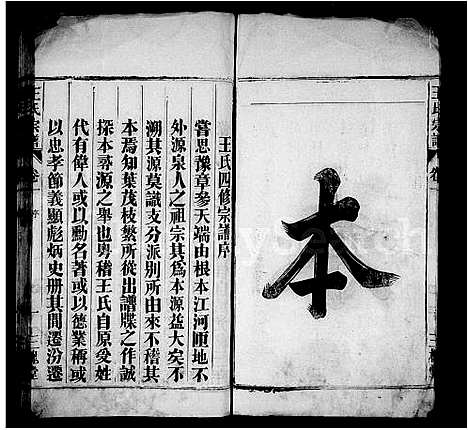 本
王氏四修宗譜序
嘗思豫章參天端由根本江河匝地不
外源泉人之祖宗其為本源益大矣不
溯其源莫識支分派別所由來不稽其
本焉知葉茂枝繁所從出譜牒之作誠
探本尋源之舉也粵稽王氏自原受姓
代有偉人或以勳名著或以德業稱或
以忠孝節義顯彪炳史册其間遷汾遷
王氏宗譜
卷
序
一
三槐堂
王氏宗譜
卷
三槐堂